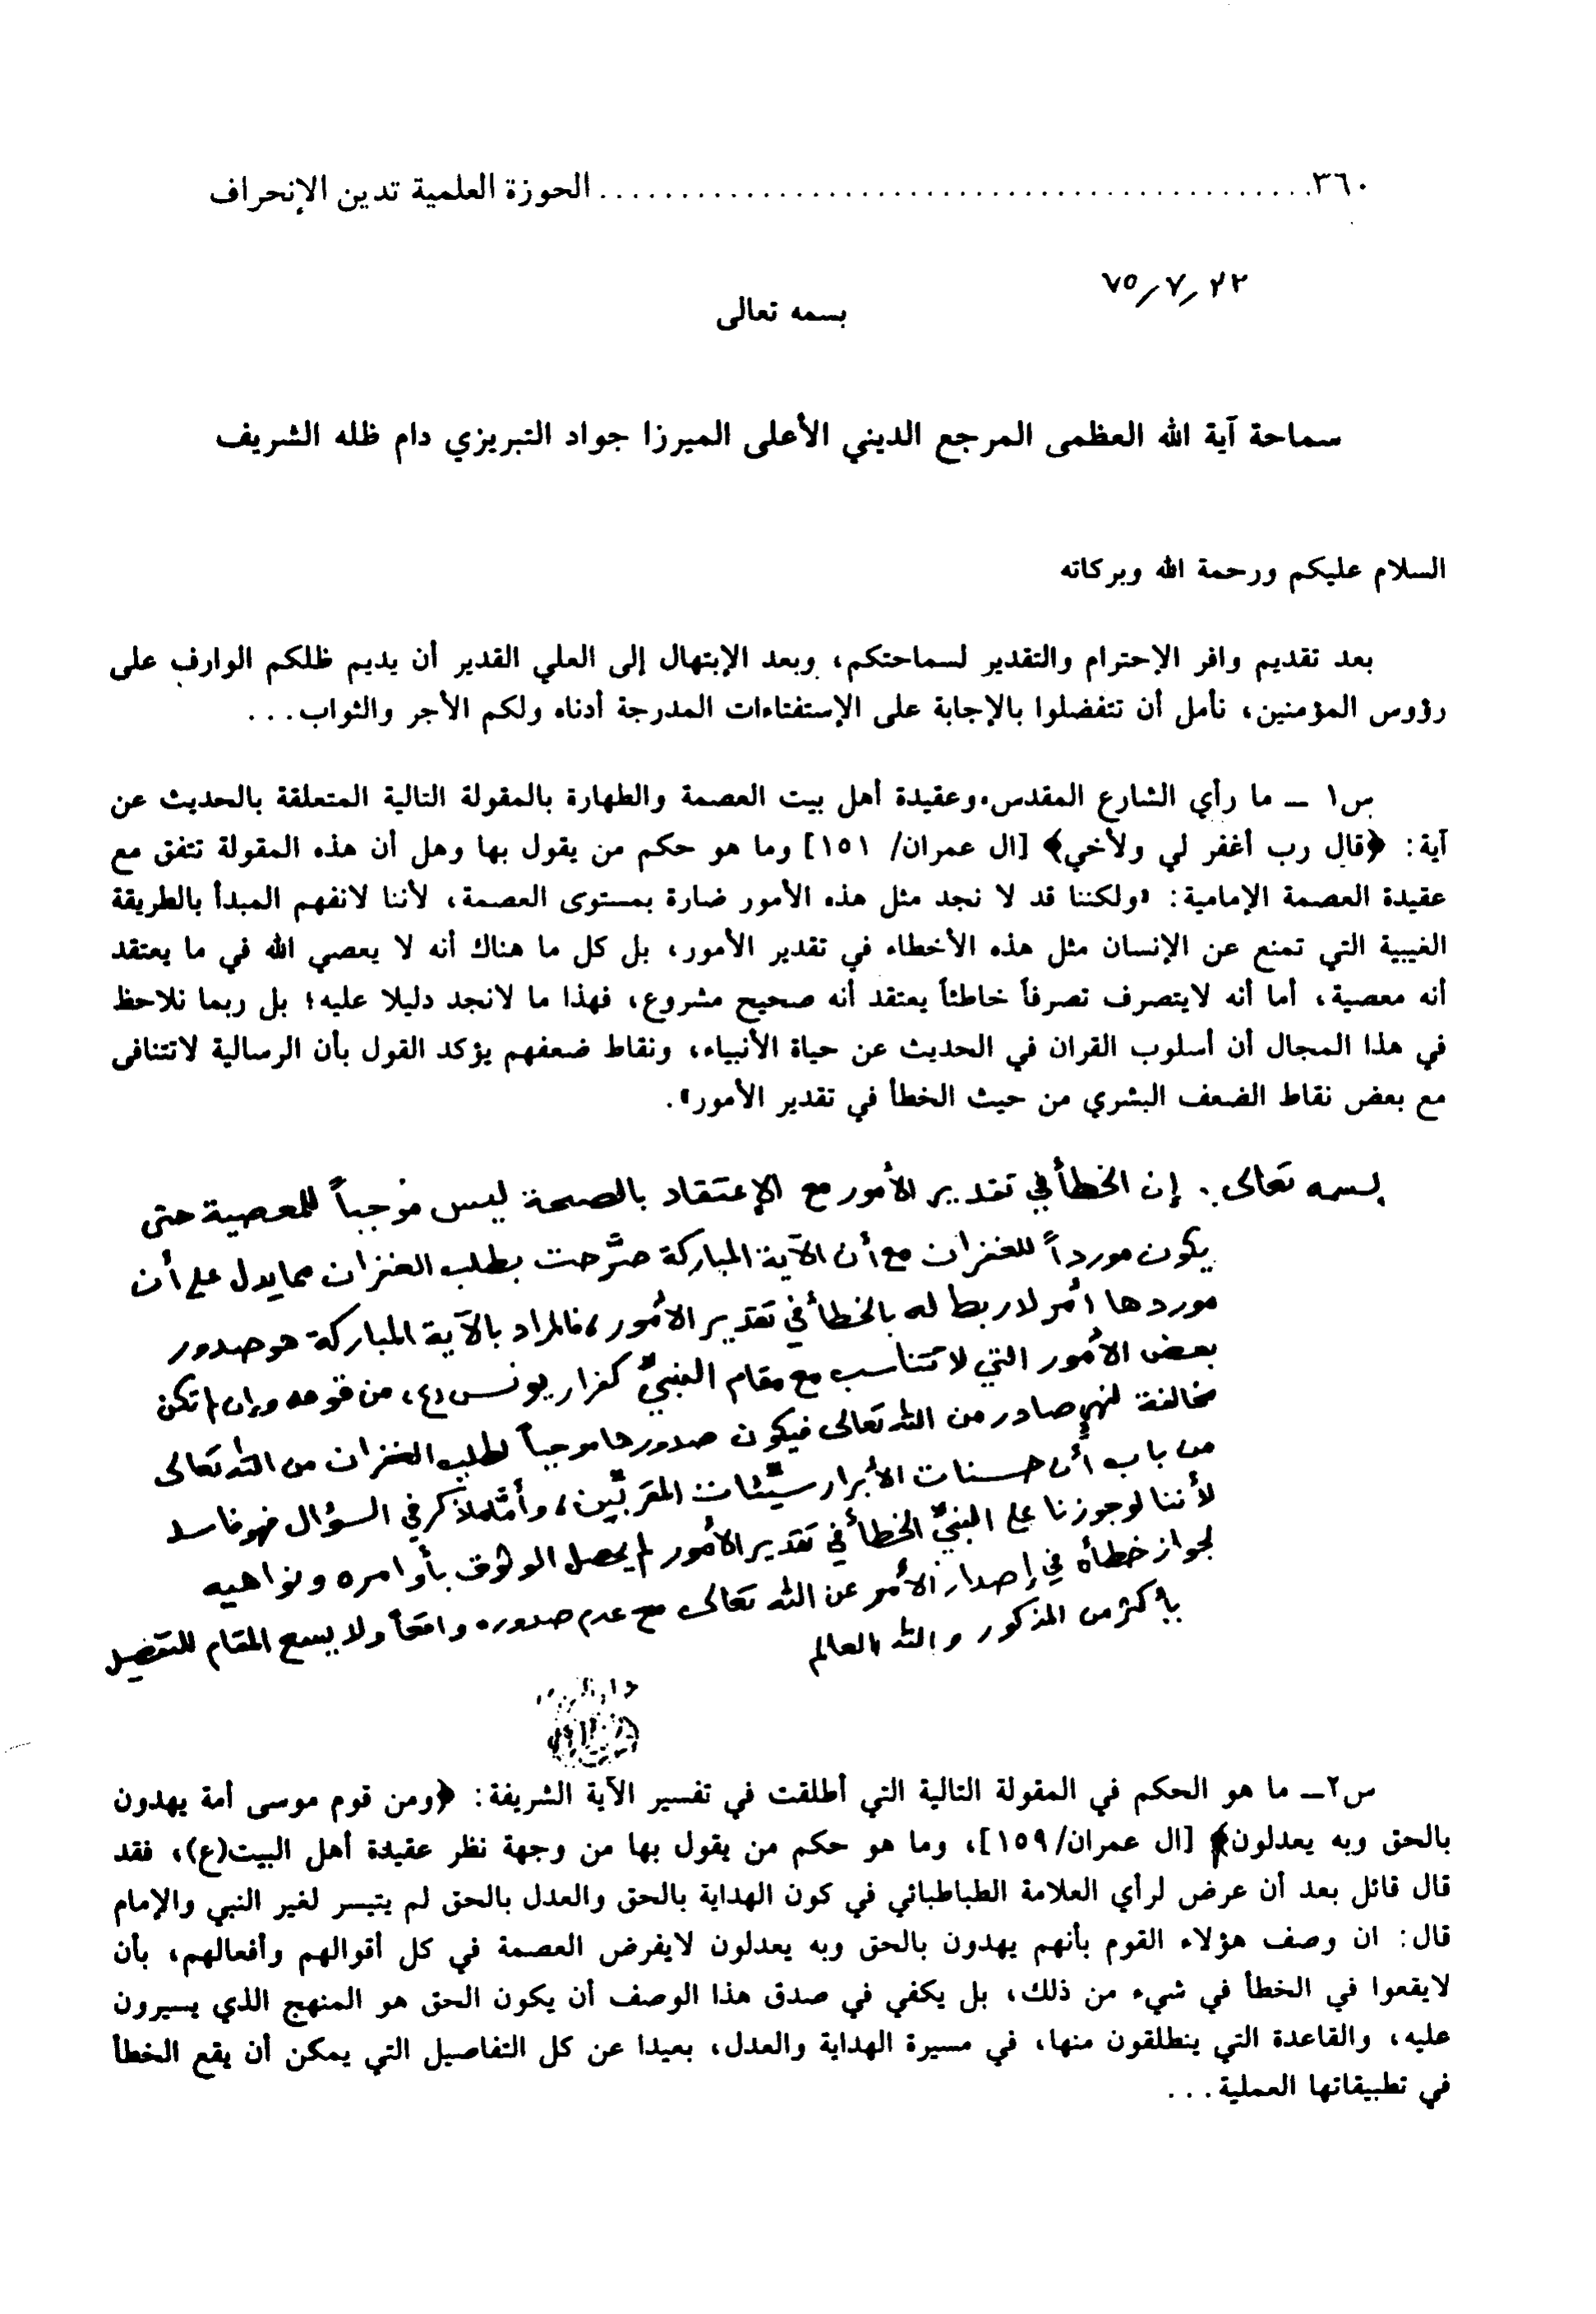 ٣٦٠ ............................................ الحوزة العلمية تدين الإنحراف
٧٥/٧/٢٢
بسمه تعالى
سماحة آية الله العظمى المرجع الديني الأعلى الميرزا جواد التبريزي دام ظله الشريف
السلام عليكم ورحمة الله وبركاته
بعد تقديم وافر الإحترام والتقدير لسماحتكم، وبعد الإبتهال إلى العلي القدير أن يديم ظلكم الوارف على
رؤوس المؤمنين، نأمل أن تتفضلوا بالإجابة على الإستفتاءات المدرجة أدناه ولكم الأجر والثواب...
س١ ـ ما رأي الشارع المقدس وعقيدة أهل بيت العصمة والطهارة بالمقولة التالية المتعلقة بالحديث عن
آية: ﴿قال رب أغفر لي ولأخي﴾ [ال عمران/ ١٥١] وما هو حكم من يقول بها وهل أن هذه المقولة تتفق مع
عقيدة العصمة الإمامية: «ولكننا قد لا نجد مثل هذه الأمور ضارة بمستوى العصمة، لأننا لانفهم المبدأ بالطريقة
الغيبية التي تمنع عن الإنسان مثل هذه الأخطاء في تقدير الأمور، بل كل ما هناك أنه لا يعصي الله في ما يعتقد
أنه معصية، أما أنه لايتصرف تصرفاً خاطئاً يعتقد أنه صحيح مشروع، فهذا ما لانجد دليلا عليه؛ بل ربما نلاحظ
في هذا المجال أن أسلوب القران في الحديث عن حياة الأنبياء، ونقاط ضعفهم يؤكد القول بأن الرسالية لاتتنافى
مع بعض نقاط الضعف البشري من حيث الخطأ في تقدير الأمور».
بسمه تعالى. إن الخطأ في تقدير الأمور مع الإعتقاد بالصحة ليس موجباً للمعصية حتى
يكون مورداً للغفران مع أن الآية المباركة صرّحت بطلب الغفران مما يدل على أن
موردها أمر لا ربط له بالخطأ في تقدير الأمور، فالمراد بالآية المباركة هو صدور
بعض الأمور التي لا تتناسب مع مقام النبيّ كفرار يونس (ع) من قومه وإن لم تكن
مخالفة لنهي صادر من الله تعالى فيكون صدورها موجباً لطلب الغفران من الله تعالى
من باب أن حسنات الأبرار سيّئات المقربّين، وأمّا ما ذكر في السؤال فهو فاسد
لأننا لو جوزنا على النبيّ الخطأ في تقدير الأمور لم يحصل الوثوق بأوامره ونواهيه
لجواز خطأه في إصدار الأمر عن الله تعالى مع عدم صدوره واقعاً ولا يسع المقام للتفصيل
بأكثر من المذكور والله العالم
س٢ـ ما هو الحكم في المقولة التالية التي أطلقت في تفسير الآية الشريفة: ﴿ومن قوم موسى أمة يهدون
بالحق وبه يعدلون﴾ [ال عمران/١٥٩]، وما هو حكم من يقول بها من وجهة نظر عقيدة أهل البيت(ع)، فقد
قال قائل بعد أن عرض لرأي العلامة الطباطبائي في كون الهداية بالحق والعدل بالحق لم يتيسر لغير النبي والإمام
قال: ان وصف هؤلاء القوم بأنهم يهدون بالحق وبه يعدلون لايفرض العصمة في كل أقوالهم وأفعالهم، بأن
لايقعوا في الخطأ في شيء من ذلك، بل يكفي في صدق هذا الوصف أن يكون الحق هو المنهج الذي يسيرون
عليه، والقاعدة التي ينطلقون منها، في مسيرة الهداية والعدل، بعيدا عن كل التفاصيل التي يمكن أن يقع الخطأ
في تطبيقاتها العملية...